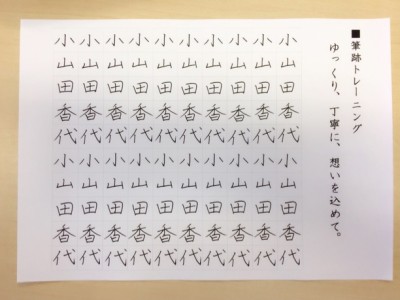 ■筆跡トレーニング
ゆっくり、丁寧に、想いを込めて。
小山田香代小山田香代
小山田香代小山田香代
小山田香代小山田香代
小山田香代小山田香代
小山田香代小山田香代
小山田香代小山田香代
小山田香代小山田香代
小山田香代小山田香代
小山田香代小山田香代
小山田香代小山田香代